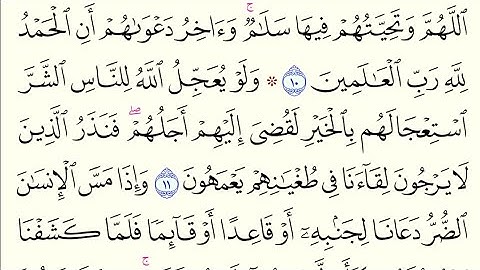 اللَّهُمَّ وَتَحِيَّتُهُمْ فِيهَا سَلَٰمٌ ۚ وَءَاخِرُ دَعْوَىٰهُمْ أَنِ ٱلْحَمْدُ
لِلَّهِ رَبِّ ٱلْعَٰلَمِينَ ١٠ ۞ وَلَوْ يُعَجِّلُ ٱللَّهُ لِلنَّاسِ ٱلشَّرَّ
ٱسْتِعْجَالَهُم بِٱلْخَيْرِ لَقُضِىَ إِلَيْهِمْ أَجَلُهُمْ ۖ فَنَذَرُ ٱلَّذِينَ
لَا يَرْجُونَ لِقَآءَنَا فِى طُغْيَٰنِهِمْ يَعْمَهُونَ ١١ وَإِذَا مَسَّ ٱلْإِنسَٰنَ
ٱلضُّرُّ دَعَانَا لِجَنۢبِهِۦٓ أَوْ قَاعِدًا أَوْ قَآئِمًا فَلَمَّا كَشَفْنَا